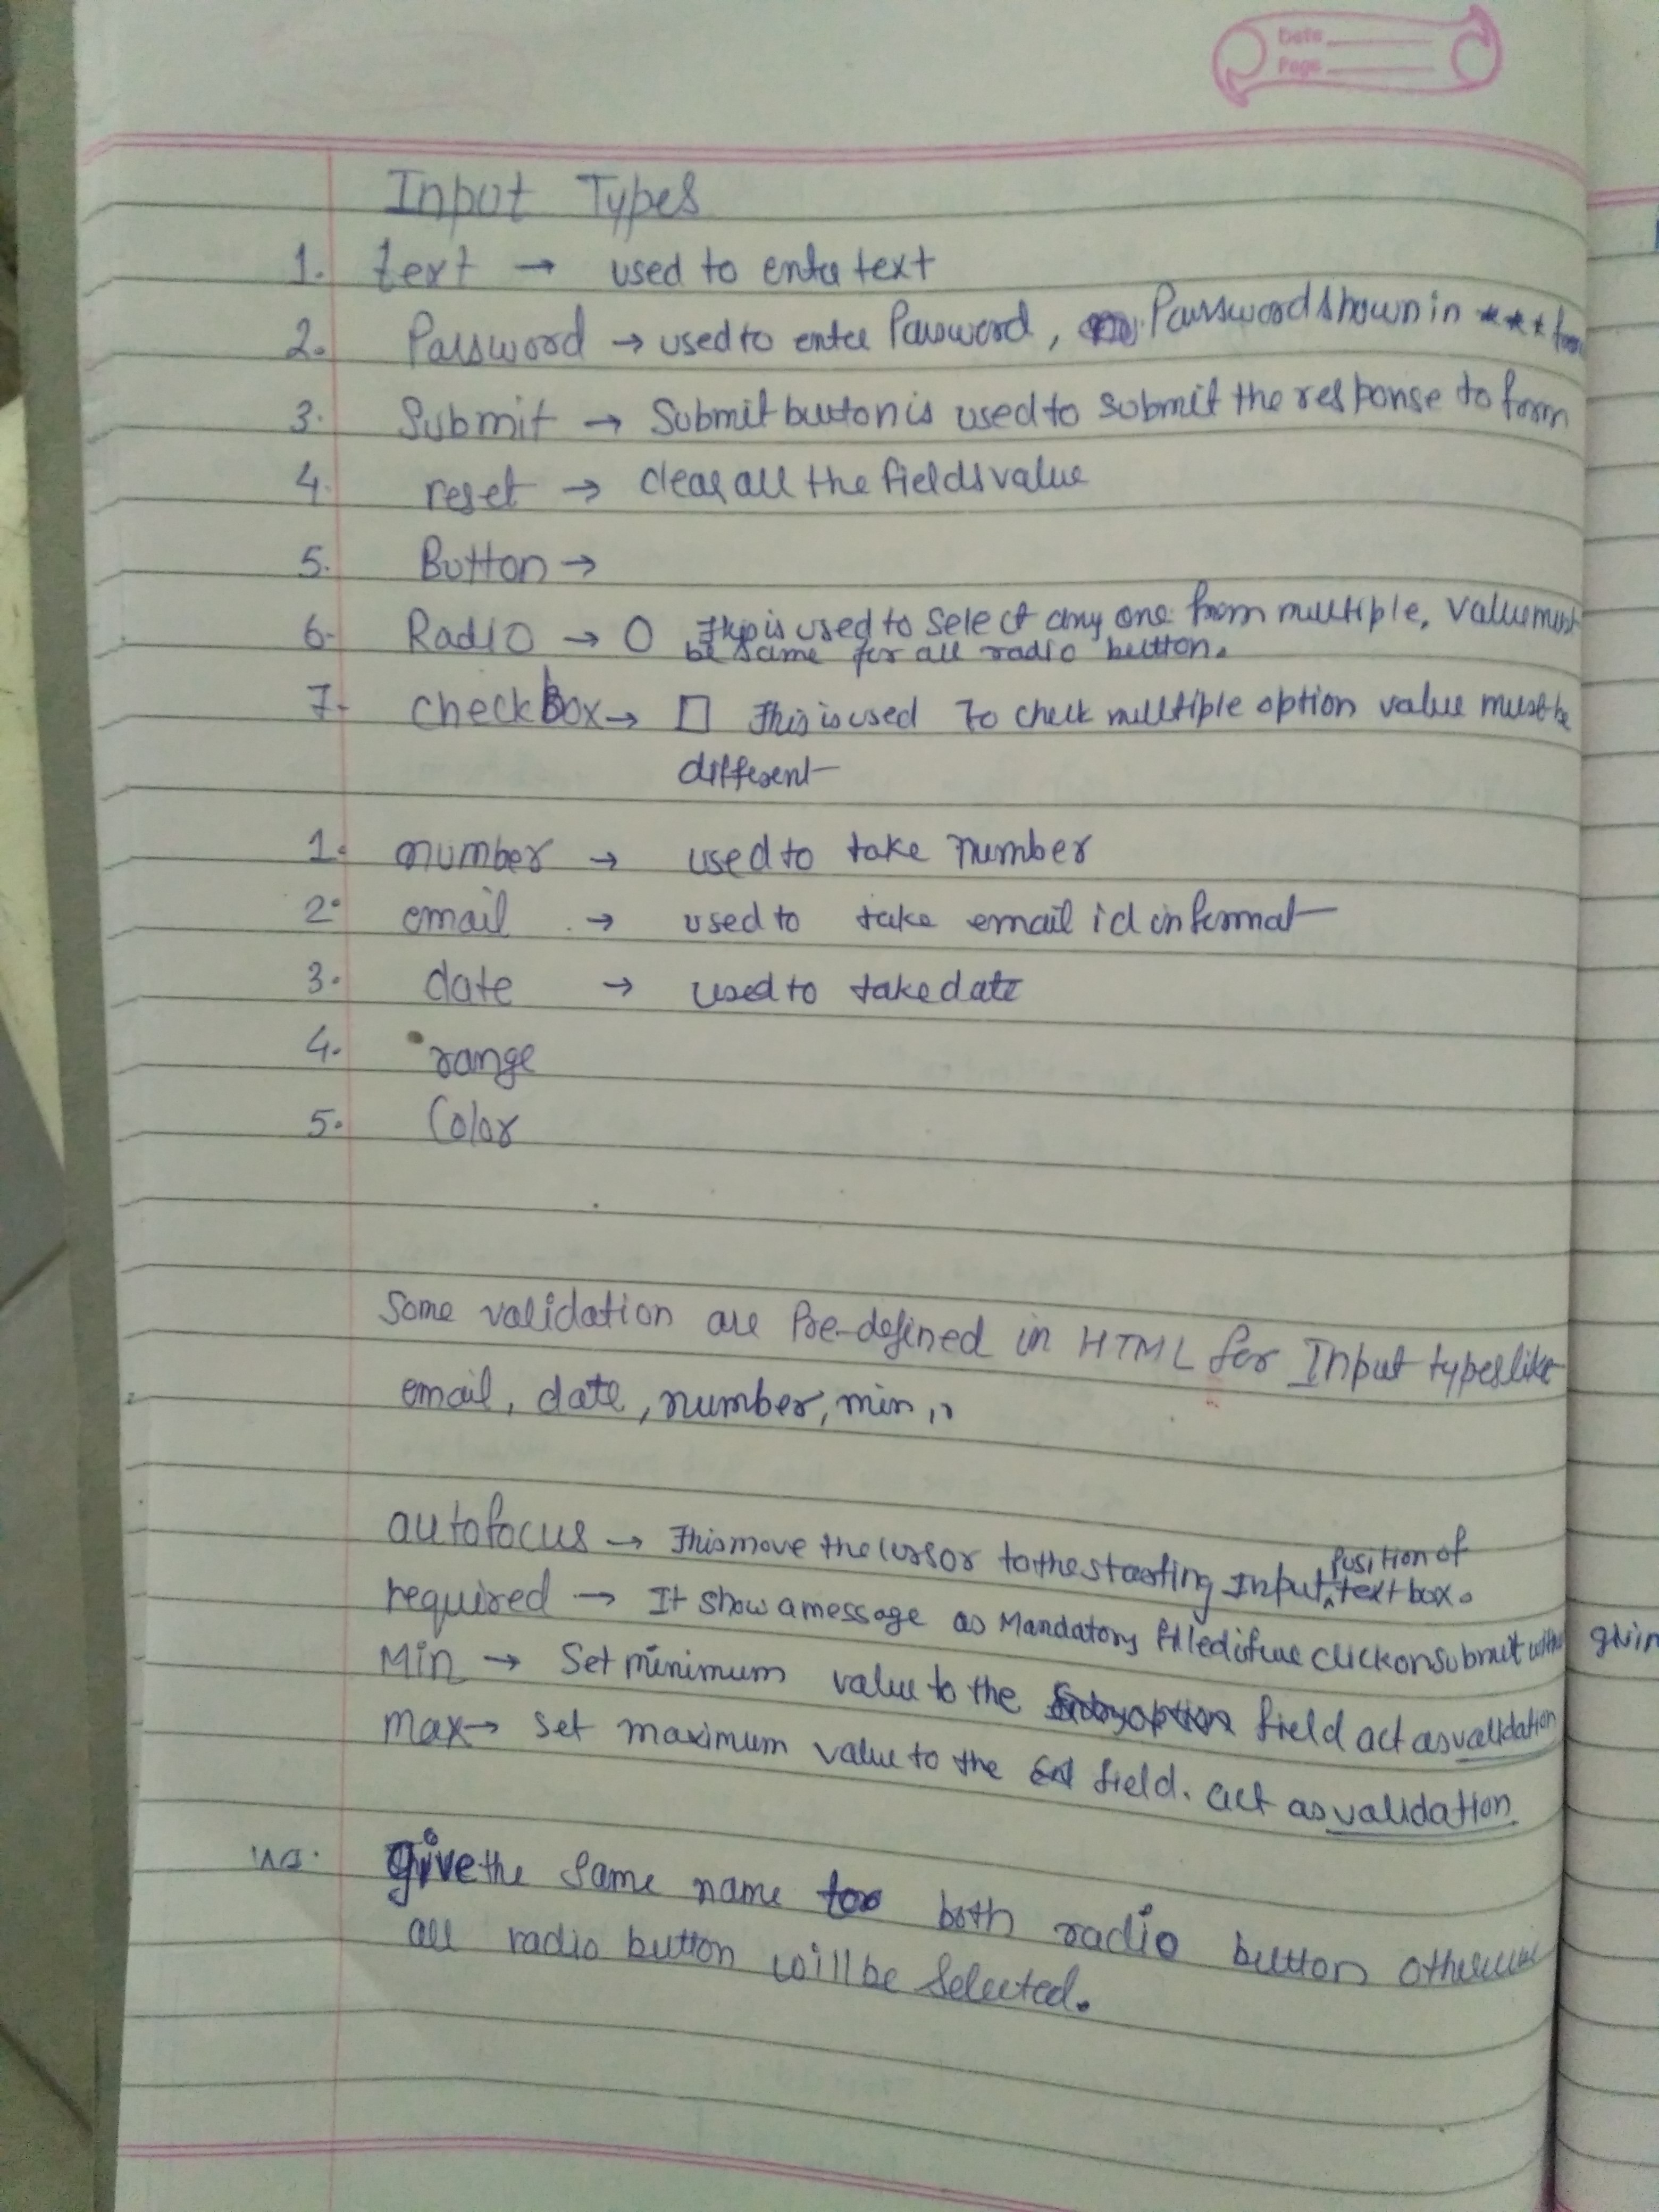 Date
Page
Input Types
1. text → used to enter text
2. Password → used to enter Password, Password shown in *** form
3. Submit → Submit button is used to submit the response to form
4. reset → clear all the fields value
5. Button →
6. Radio → O This is used to select any one from multiple, value must
be same for all radio button.
7. checkbox → □ This is used To check multiple option value must be
different
1. number → used to take number
2. email → used to take email id in format
3. date → used to take date
4. range
5. Color
Some validation are Pre-defined in HTML for Input types like
email, date, number, min,,
autofocus → This move the cursor to the starting Input position of text box.
required → It show a message as Mandatory filled if we click on submit
Min → Set minimum value to the field act as validation
max → set maximum value to the field. act as validation
give the same name to both radio button otherwise
all radio button will be selected.